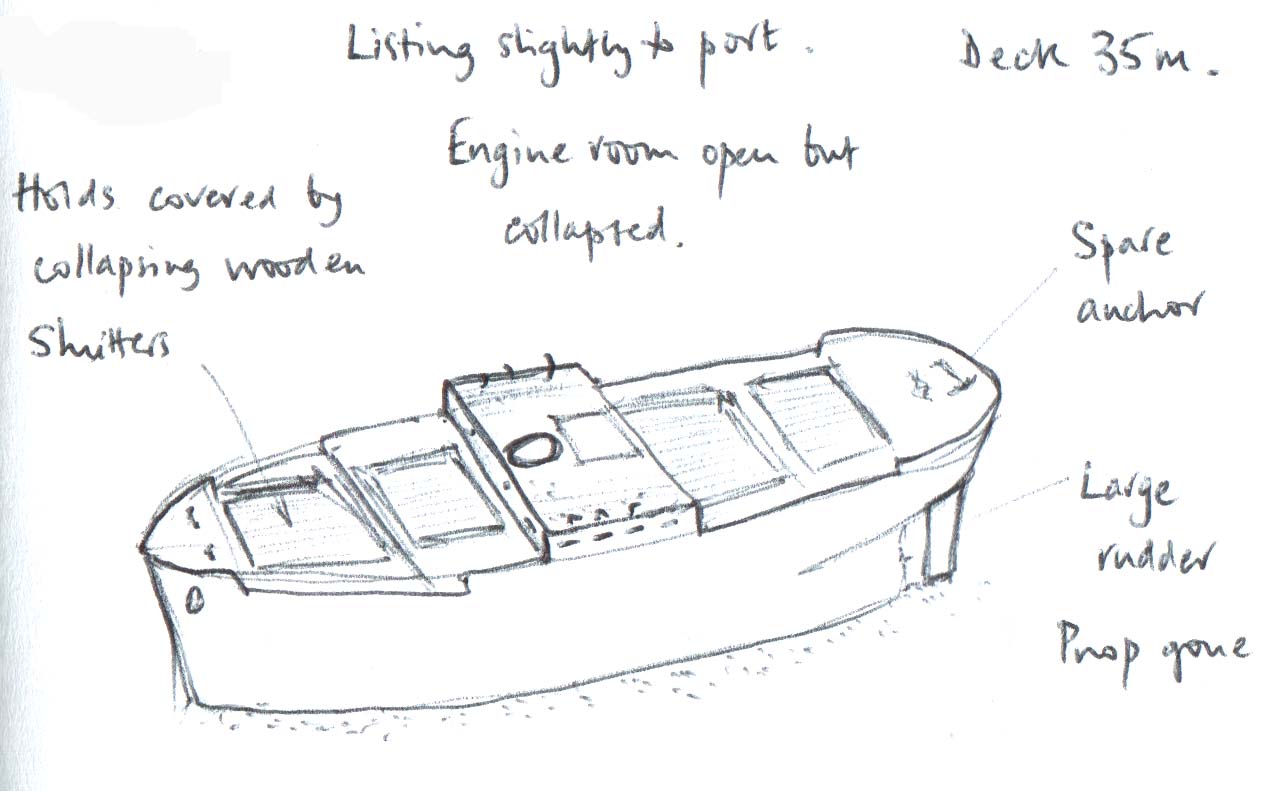 Listing slightly to port.
Deck 35m.
Engine room open but
collapsed.
Holds covered by
collapsing wooden
Shutters
Spare
anchor
Large
rudder
Prop gone